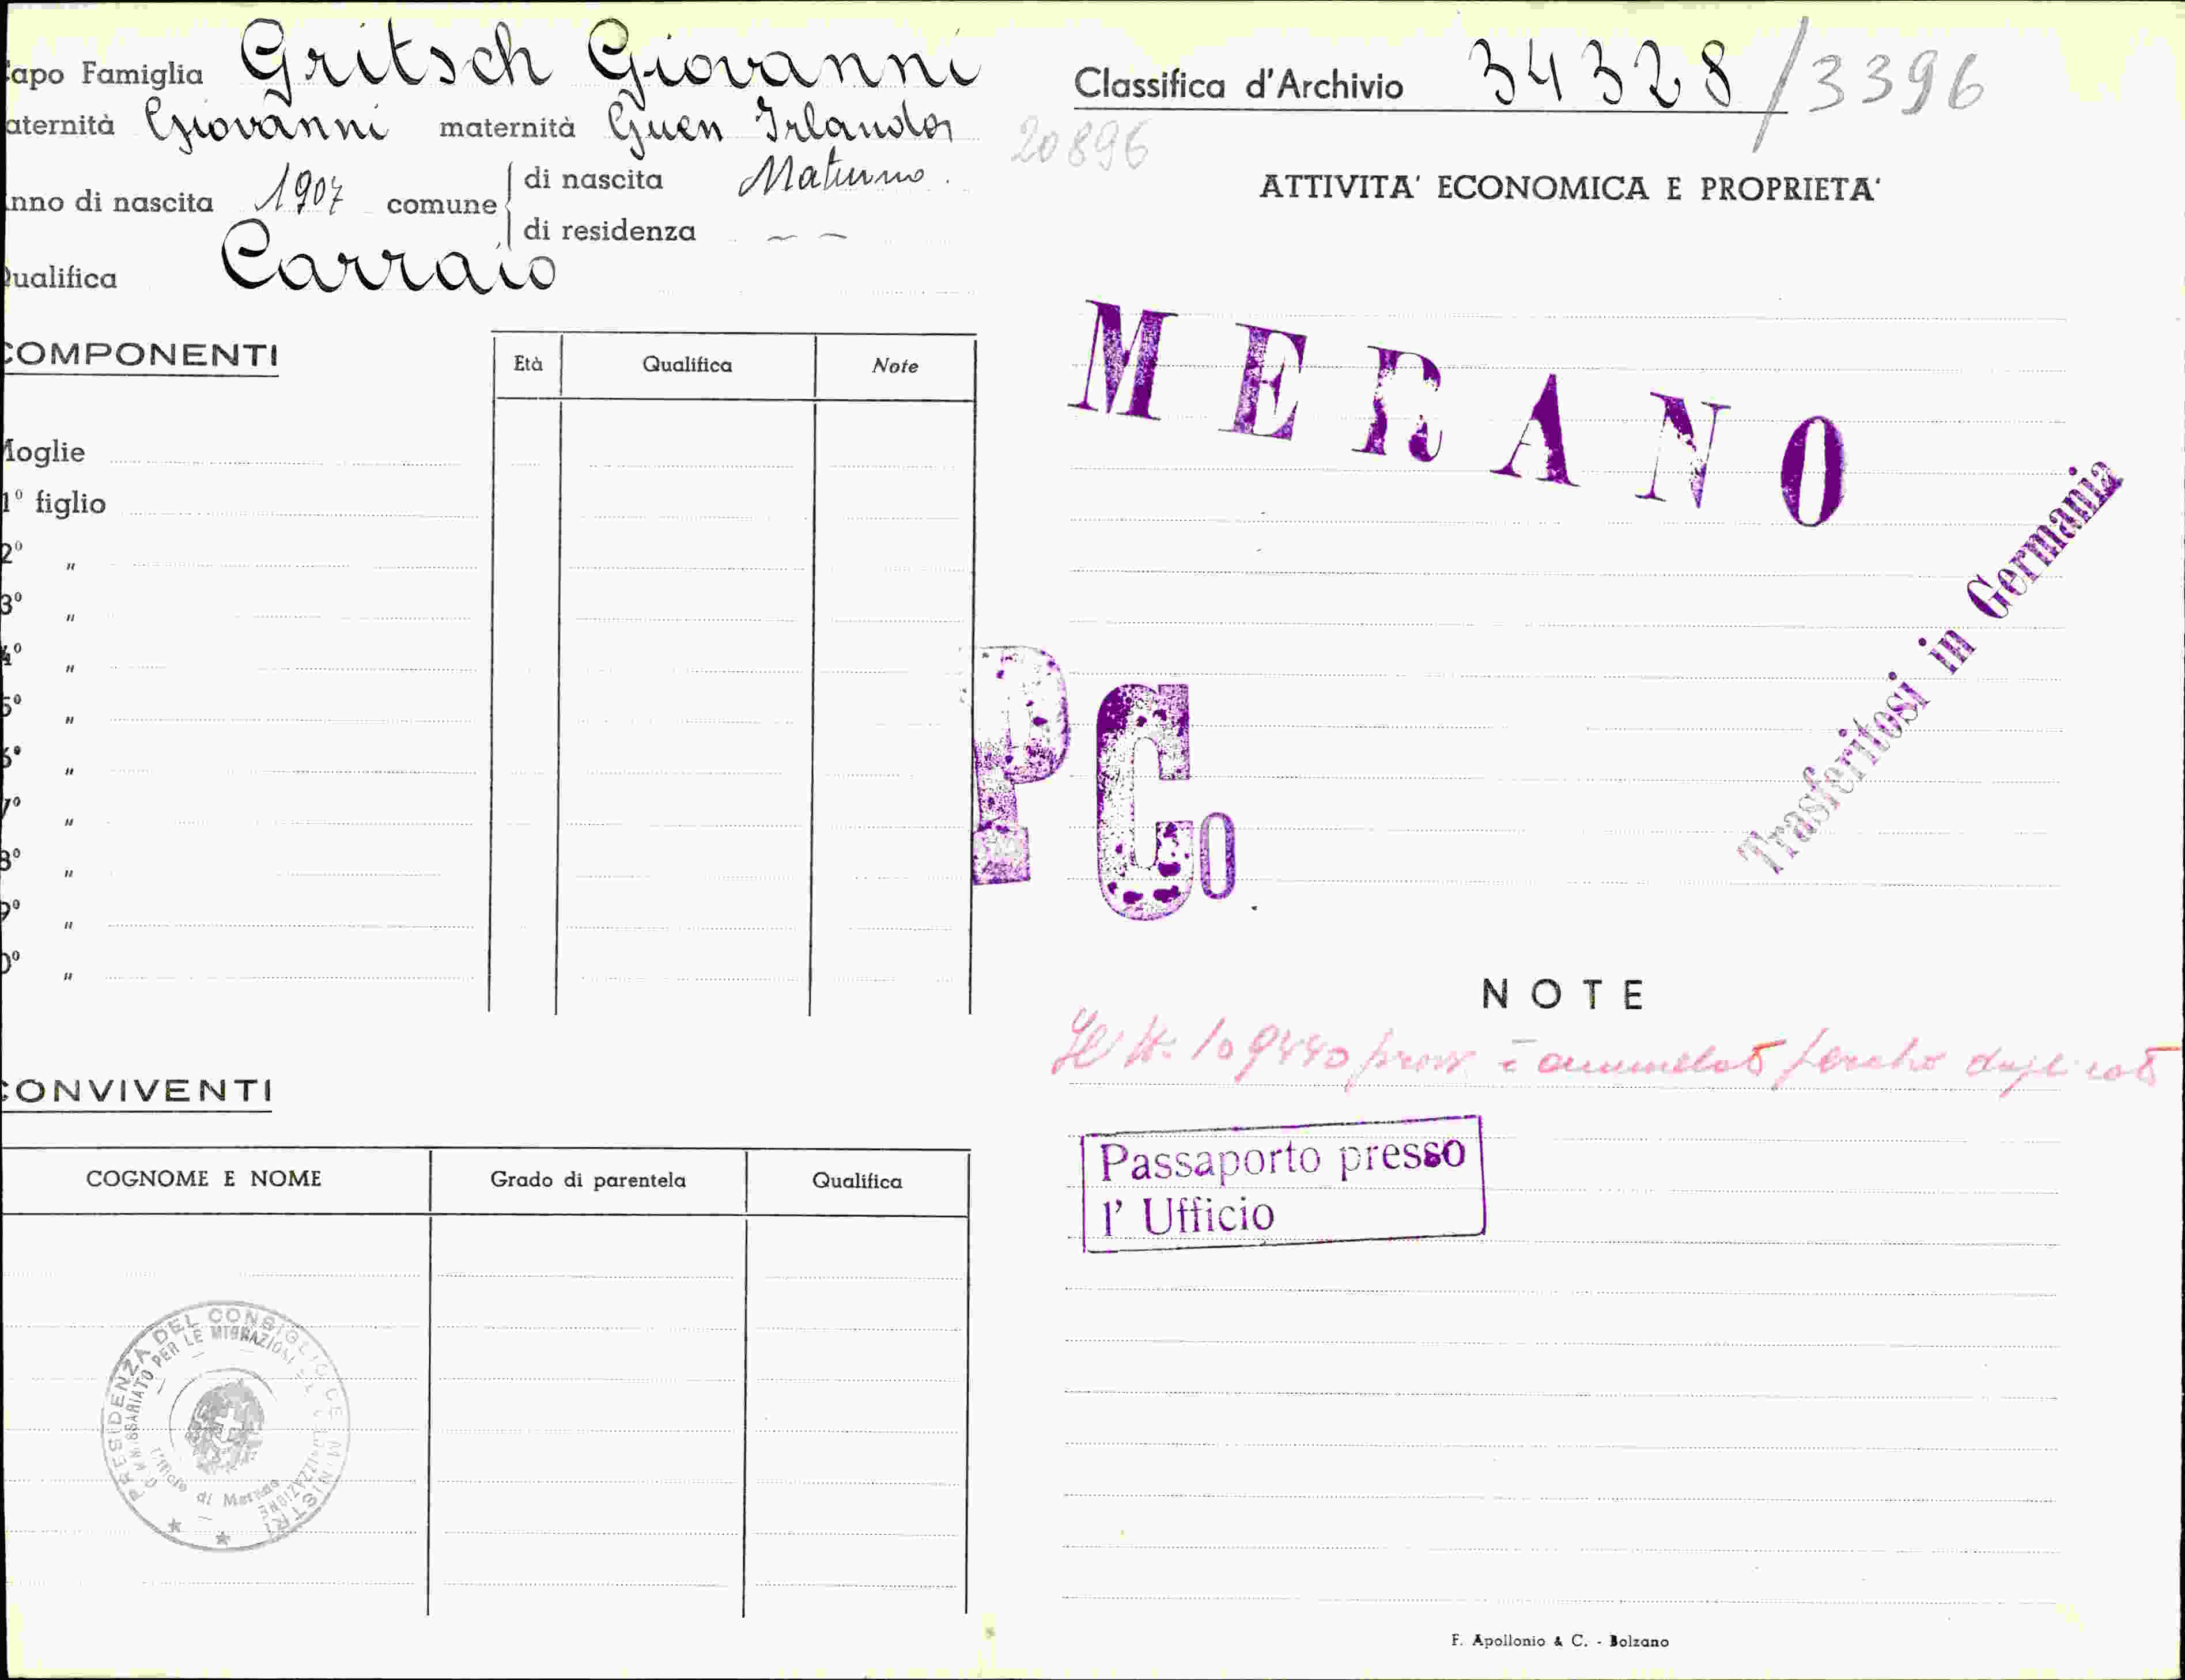 Capo Famiglia Gritsch Giovanni
aternità Giovanni maternità Guen Irlanda
nno di nascita 1907 comune di nascita Maturno.
di residenza — —
Qualifica Carraio
COMPONENTI
Età Qualifica Note
Moglie
1° figlio
2° "
3° "
4° "
5° "
6° "
7° "
8° "
9° "
0° "
CONVIVENTI
COGNOME E NOME Grado di parentela Qualifica
PRESIDENZA DEL CONSIGLIO DEI MINISTRI
COMMISSARIATO PER LE MIGRAZIONI E LA COLONIZZAZIONE
Ufficio di Merano
Classifica d'Archivio 34328/3396
20896
ATTIVITA' ECONOMICA E PROPRIETA'
MERANO
Trasferitosi in Germania
P Co
NOTE
Il N. 109440 è annullato perchè duplicato
Passaporto presso
l' Ufficio
F. Apollonio & C. - Bolzano